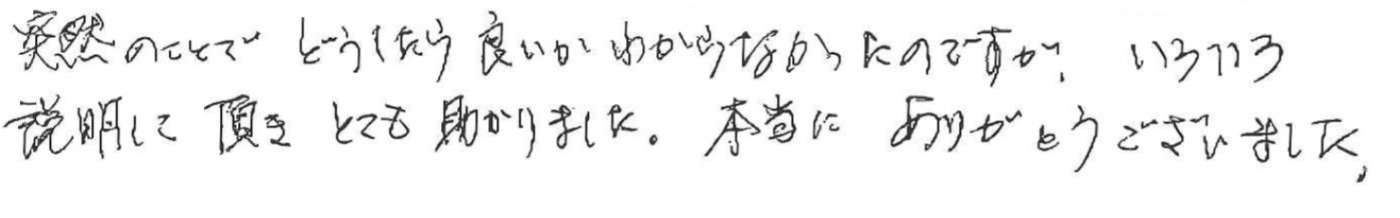 突然のことで どうしたら良いかわからなかったのですが、いろいろ
説明して頂き とても助かりました。本当に ありがとうございました。